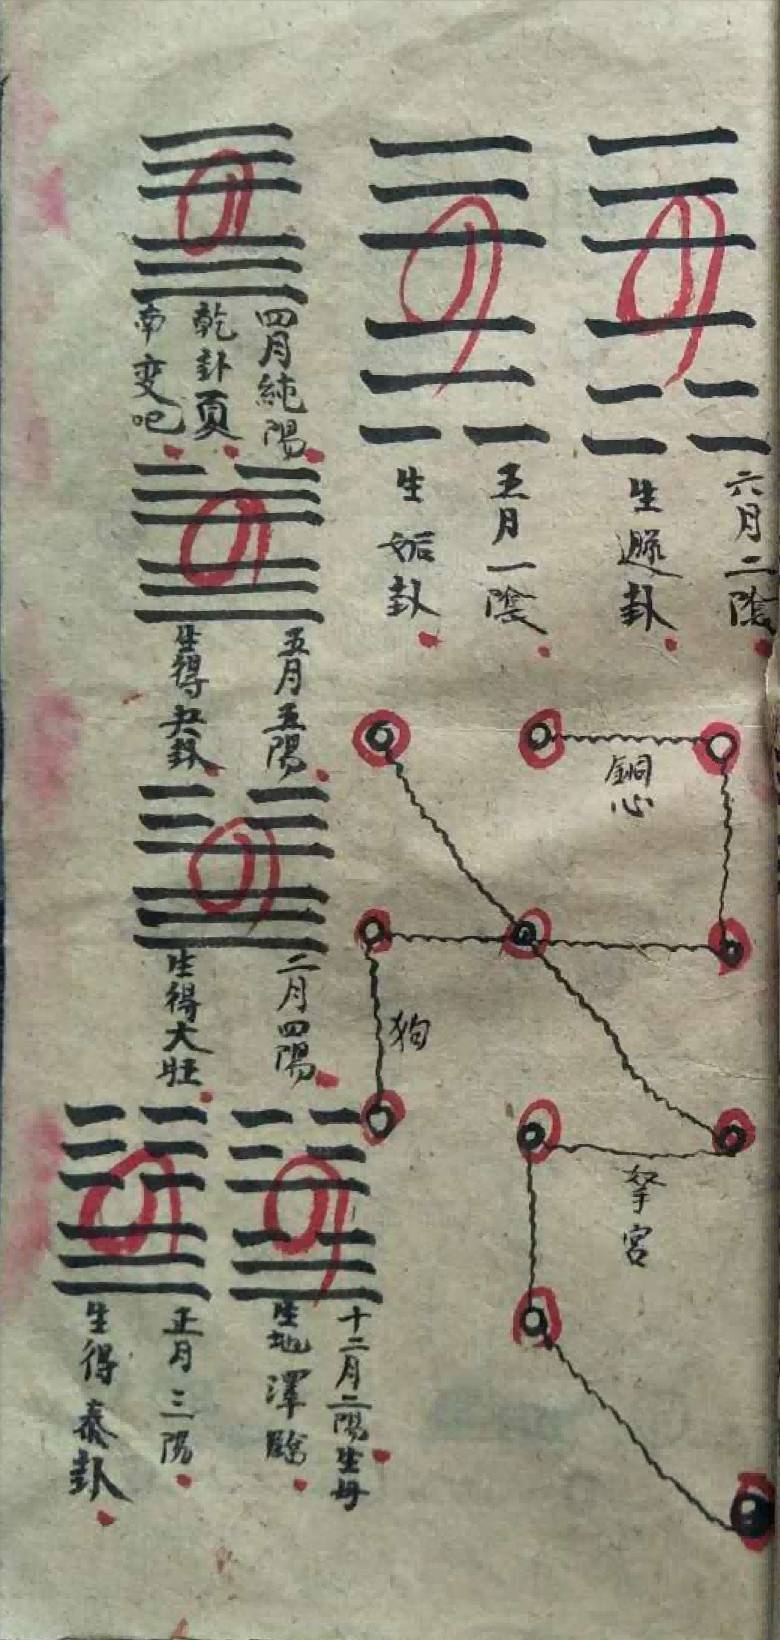 六月二陰
生遯卦
五月一陰
生姤卦
四月純陽
乾卦頁
南变吧
五月五陽
生得夬卦
二月四陽
生得大旺
十二月二陽生母
生地澤
正月三陽
生得泰卦
銅心
狗
宮